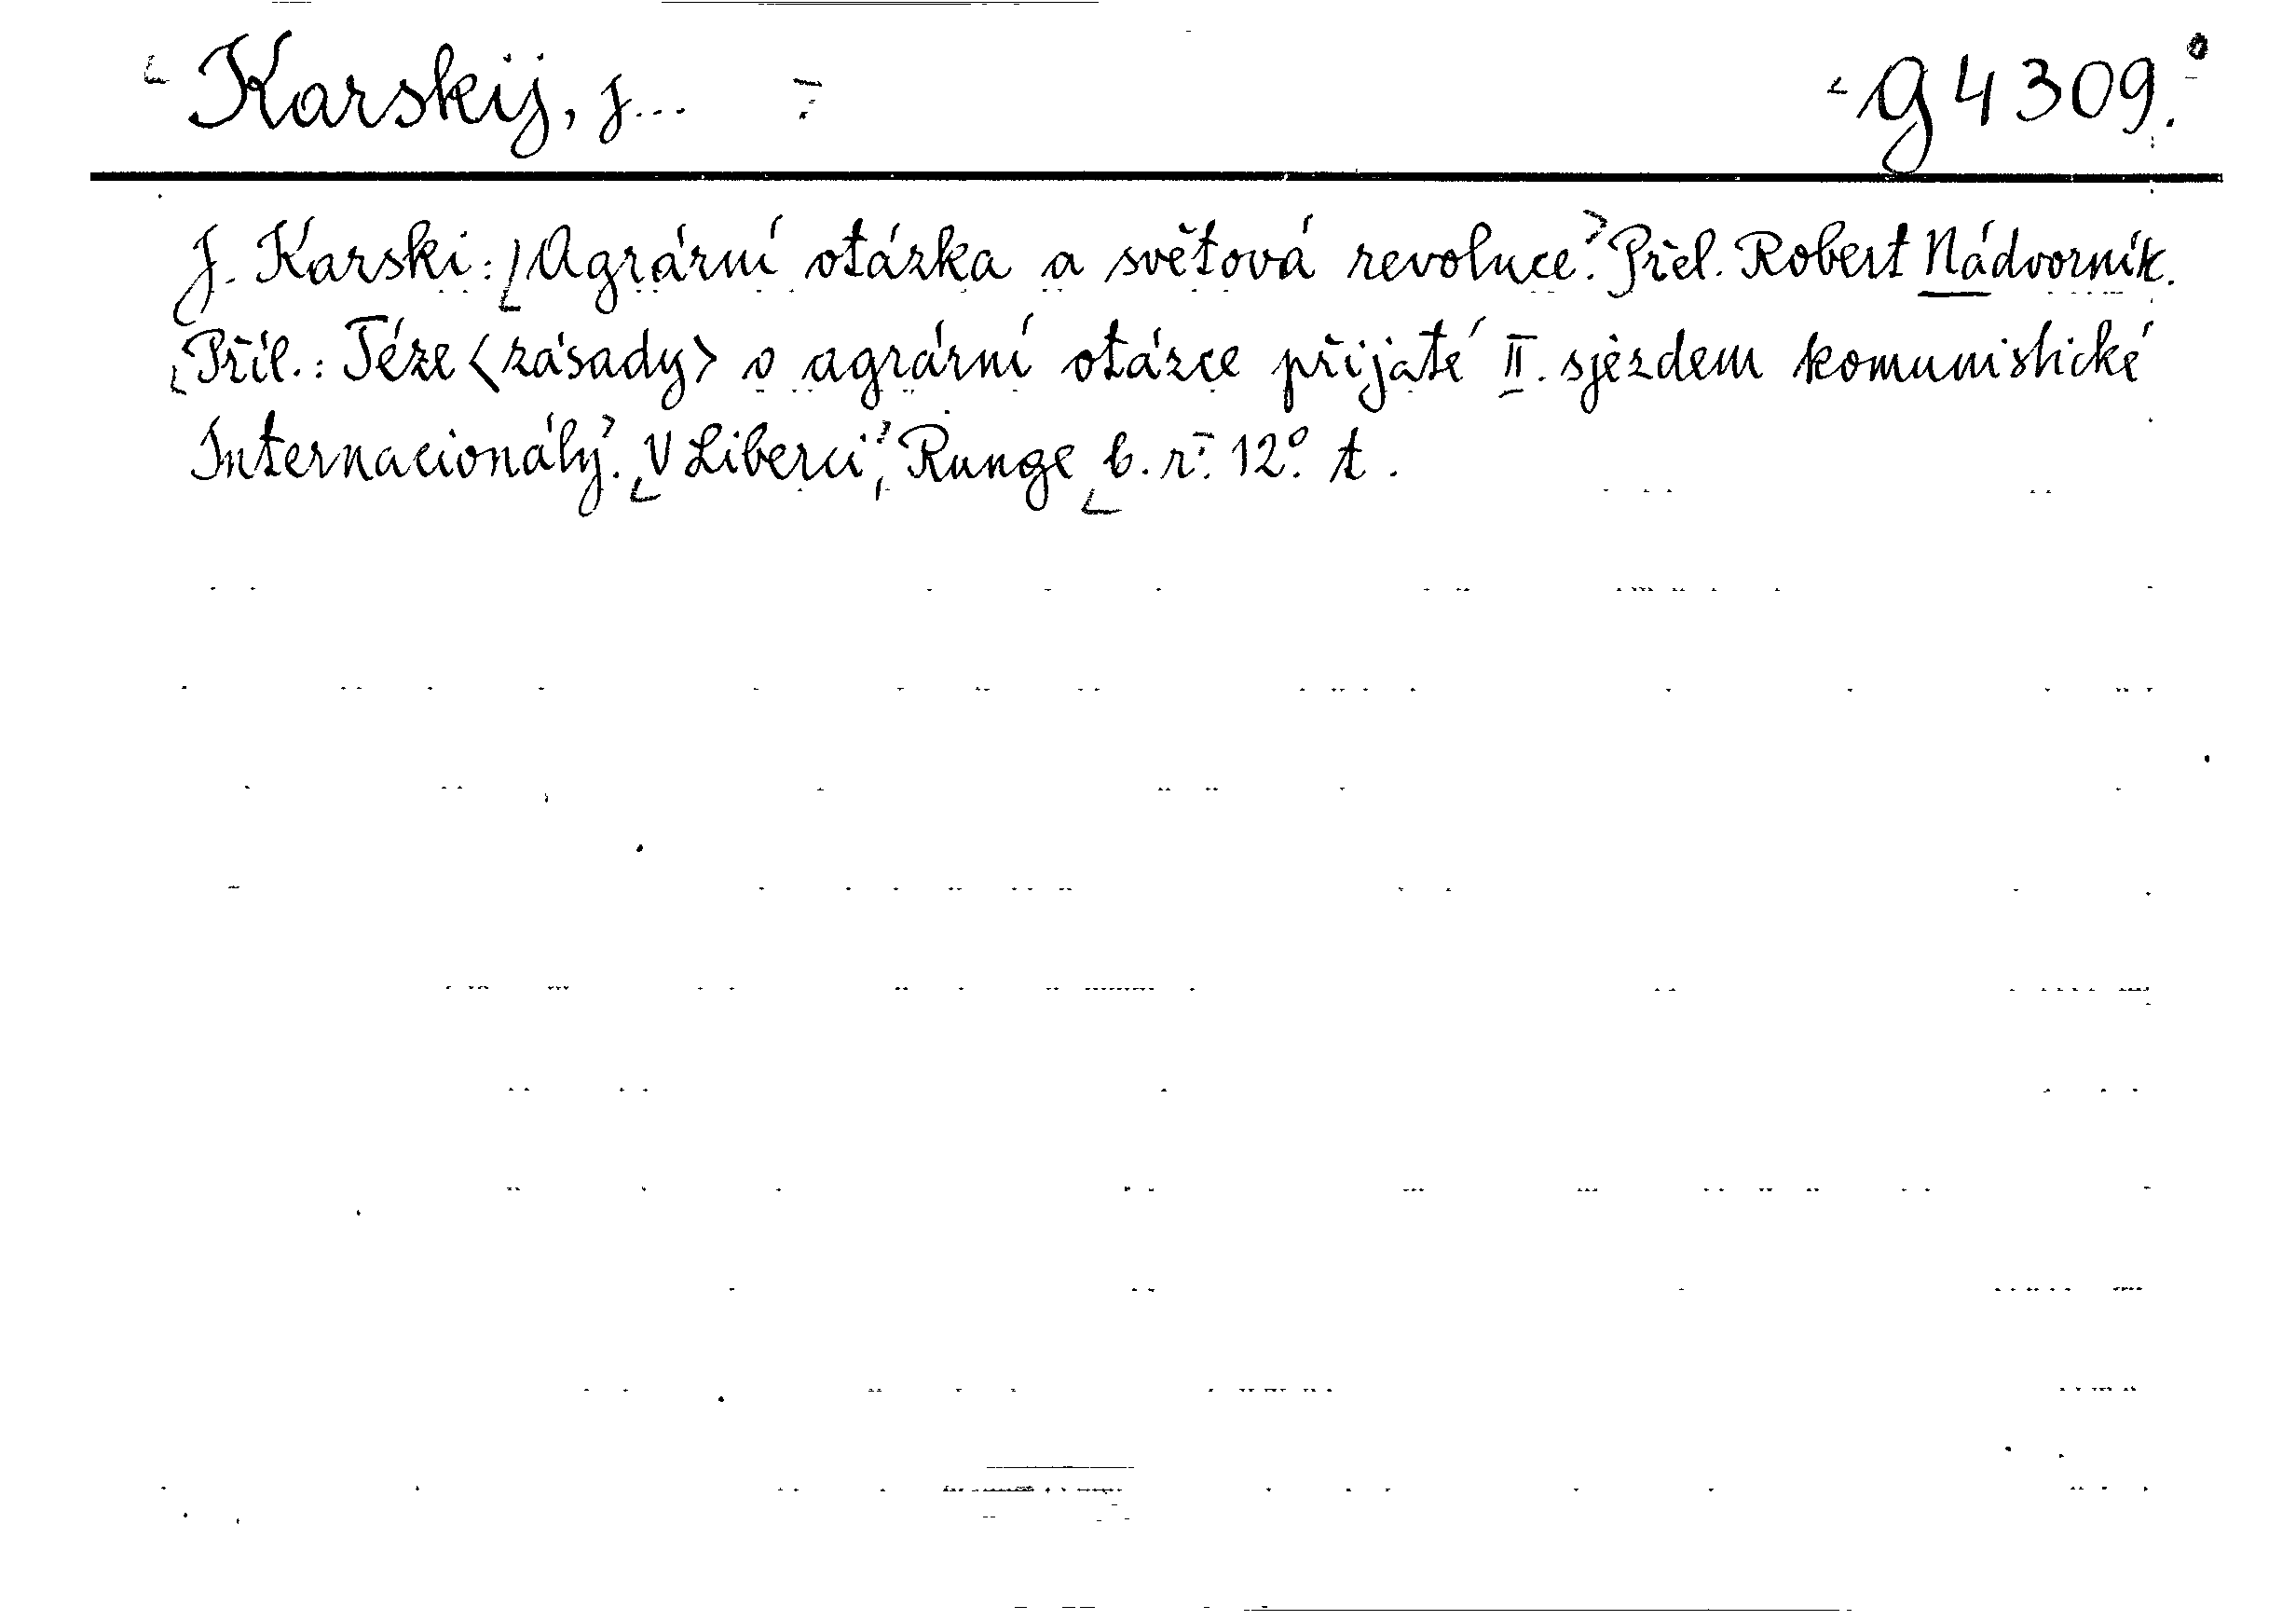 Karskij, J... G 4309.
J. Karski: Agrární otázka a světová revoluce. Přel. Robert Nádvorník.
Příl.: Téze <zásady> o agrární otázce přijaté II. sjezdem komunistické
Internacionály. V Liberci, Runge b. r. 12° t.